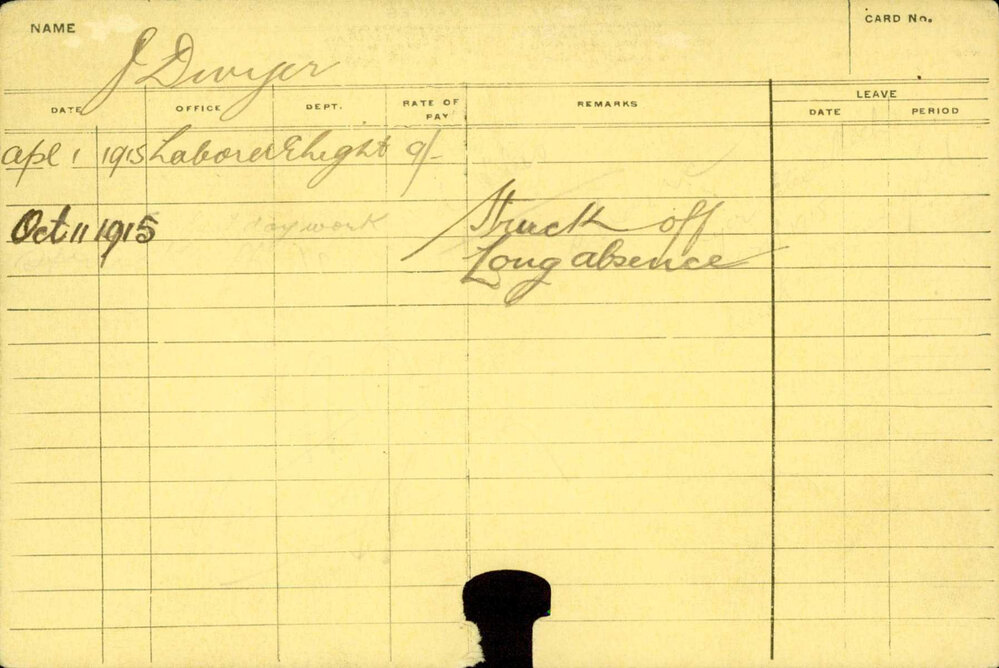 NAME J Dwyer CARD No.
DATE OFFICE DEPT. RATE OF PAY REMARKS LEAVE
DATE PERIOD
Apl 1 1915 Laborer Elieght 9/-
Oct 11 1915 day work Struck off
Long absence